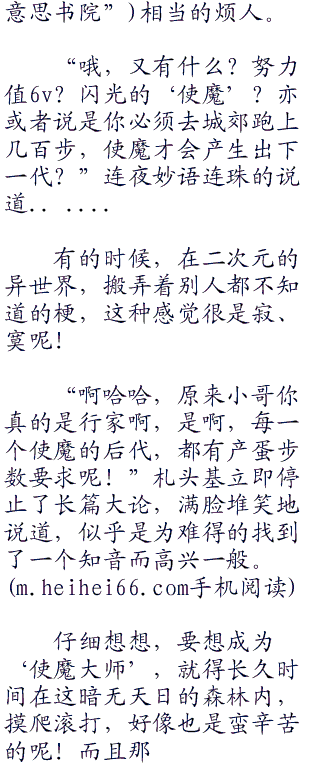 意思书院”)相当的烦人。
“哦，又有什么？努力
值6v？闪光的‘使魔’？亦
或者说是你必须去城郊跑上
几百步，使魔才会产生出下
一代？”连夜妙语连珠的说
道.. ....
有的时候，在二次元的
异世界，搬弄着别人都不知
道的梗，这种感觉很是寂、
寞呢！
“啊哈哈，原来小哥你
真的是行家啊，是啊，每一
个使魔的后代，都有产蛋步
数要求呢！”札头基立即停
止了长篇大论，满脸堆笑地
说道，似乎是为难得的找到
了一个知音而高兴一般。
(m.heihei66.com手机阅读)
仔细想想，要想成为
‘使魔大师’，就得长久时
间在这暗无天日的森林内，
摸爬滚打，好像也是蛮辛苦
的呢！而且那